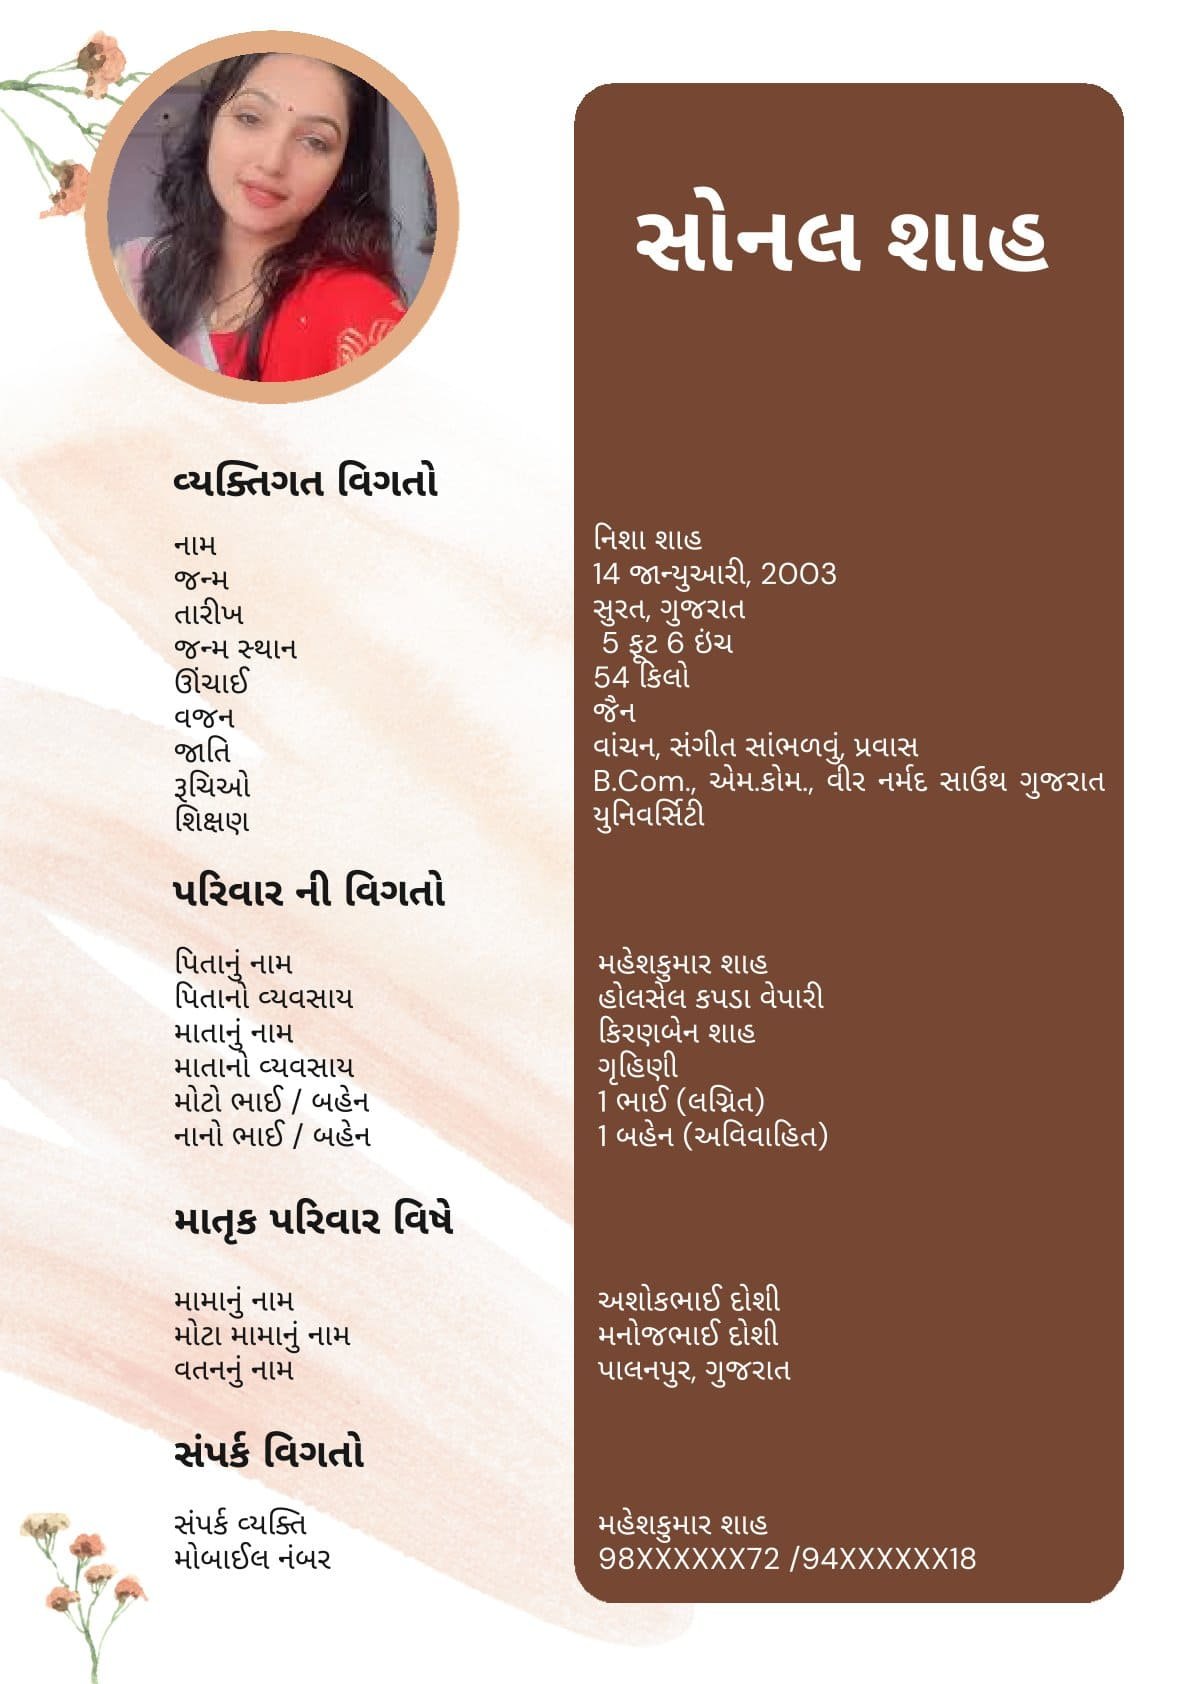 સોનલ શાહ
વ્યક્તિગત વિગતો
નામ
નિશા શાહ
જન્મ
14 જાન્યુઆરી, 2003
તારીખ
સુરત, ગુજરાત
જન્મ સ્થાન
5 ફૂટ 6 ઇંચ
ઊંચાઈ
54 કિલો
વજન
જૈન
જાતિ
વાંચન, સંગીત સાંભળવું, પ્રવાસ
રૂચિઓ
B.Com., એમ.કોમ., વીર નર્મદ સાઉથ ગુજરાત
શિક્ષણ
યુનિવર્સિટી
પરિવાર ની વિગતો
પિતાનું નામ
મહેશકુમાર શાહ
પિતાનો વ્યવસાય
હોલસેલ કપડા વેપારી
માતાનું નામ
કિરણબેન શાહ
માતાનો વ્યવસાય
ગૃહિણી
મોટો ભાઈ / બહેન
1 ભાઈ (લગ્નિત)
નાનો ભાઈ / બહેન
1 બહેન (અવિવાહિત)
માતૃક પરિવાર વિષે
મામાનું નામ
અશોકભાઈ દોશી
મોટા મામાનું નામ
મનોજભાઈ દોશી
વતનનું નામ
પાલનપુર, ગુજરાત
સંપર્ક વિગતો
સંપર્ક વ્યક્તિ
મહેશકુમાર શાહ
મોબાઈલ નંબર
98XXXXXX72 /94XXXXXX18